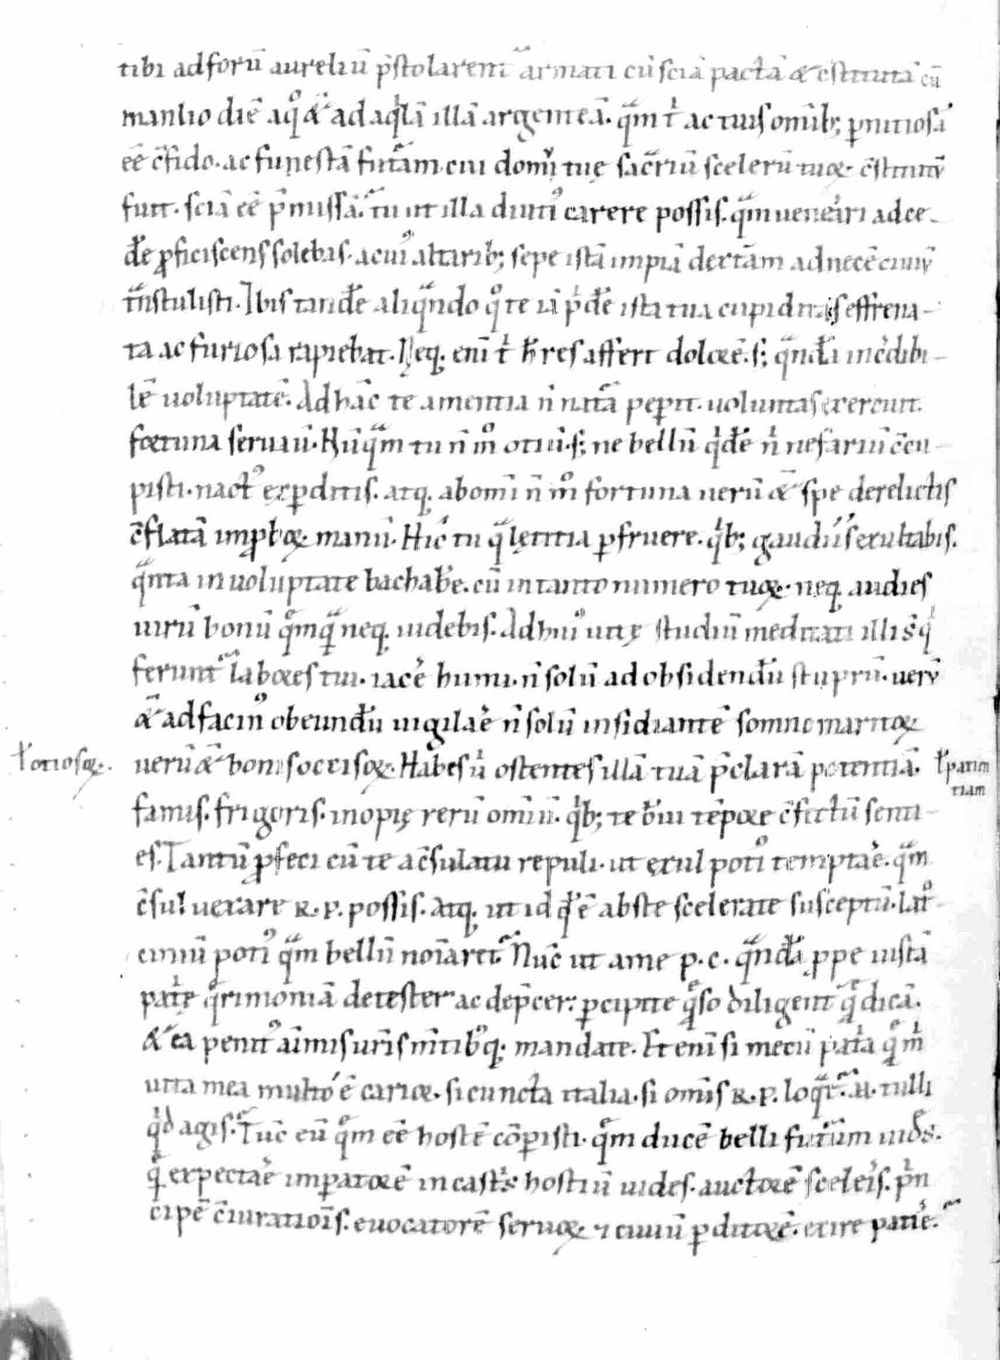 tibi ad forū aureliū p̄stolarent᷑ armati cū sciā pactā & c̄stitutā cū
manlio diē a q̊ &̄ ad aq̇lā illā argenteā. q̄m t̉ ac tuis omīb; ꝑnitiosā
eē c̄fido. ac funestā futām. cui domį tuę sac̄riū scelerū tuoꝝ c̄stitutū
fuit. sciā eē p̄missā. tu ut illa diuti᾽ carere possis. q̄m uenerari ad ce-
dē ꝓficiscens solebas. a cui᾽ altarib; sepe istā impiā dextām ad necē ciuiū
t̄nstulisti. Ibis tandē aliq̄ndo q̊ te iā p̉dē ista tua cupiditas effrena-
ta ac furiosa rapiebat. Neq; eni t̉ h̄ res affert dolorē. s; q̄ndā incredibi-
lē uoluptatē. Ad hāc te amentia n̄ natā peꝑit. uoluntas exercuit.
fortuna seruauit. Nūq̄m tu n̄ m̊ otiū. s; ne bellū q̇dē n̉ nefariū c̄cu-
pisti. nact᾽ ex ꝑditis. atq; ab omī n̄ m̊ fortuna uerū &̄ spe derelictis
c̄flatā improboꝝ manū. Hic̄ tu q̄ lętitia ꝑfruere. q̇b; gaudiis exultabis.
q̄nta in uoluptate bachabēre. cū in tanto numero tuoꝝ. neq; audies
uirū bonū q̄mq̄ neq; uidebis. Ad hui᾽ uitę studiū meditati illi s̄ q̇
ferunt᷑ labores tui. iacē humi. n̄ solū ad obsidendū stuprū. uerū
&̄ ad facin᾽ obeundū. uigilaē n̄ solū insidiantē somno maritoꝝ
ł otiosoꝝ. uerū &̄ bonis occisoꝝ. Habes u̇ ostentes illā tuā p̄clarā potentiā. ł patien
tiam
famis. frigoris. inopię rerū omīū. q̇b; te breui tēpore c̄fectū senti-
es. Tantū ꝓfeci cū te a c̄sulatu repuli. ut exul poti᾽ temptaē. q̄m
c̄sul uexare R. P. possis. Atq; ut id q̊d ē abs te scelerate susceptū. lat̊-
ciniū poti᾽ q̄m bellū noīaret᷑. Nūc ut a me p. c. q̄ndā ꝓpe iustā
pat̉ę q̄rimoniā detester ac dep̄cer: ꝑcipite q̄so diligent̄ q̄ dicā.
& ea penit᾽ aīmis ur̄is m̄tib᾽q; mandate. Et enī si mecū pat̉a q̄ m̉
uita mea multo ē carior. si cuncta italia. si omīs R. P. loq̄t᷑. M. tulli
q̇d agis. Tunc eū q̄m eē hostē cōꝑisti. q̄m ducē belli futūm uides.
q̄ expectaē imperatorē in castris hostiū uides. auctorē sceleris. p̉n
cipē c̄iuratiois. euocatorē seruoꝝ ⁊ ciuiū ꝑditoꝝ. exire patie.᷑